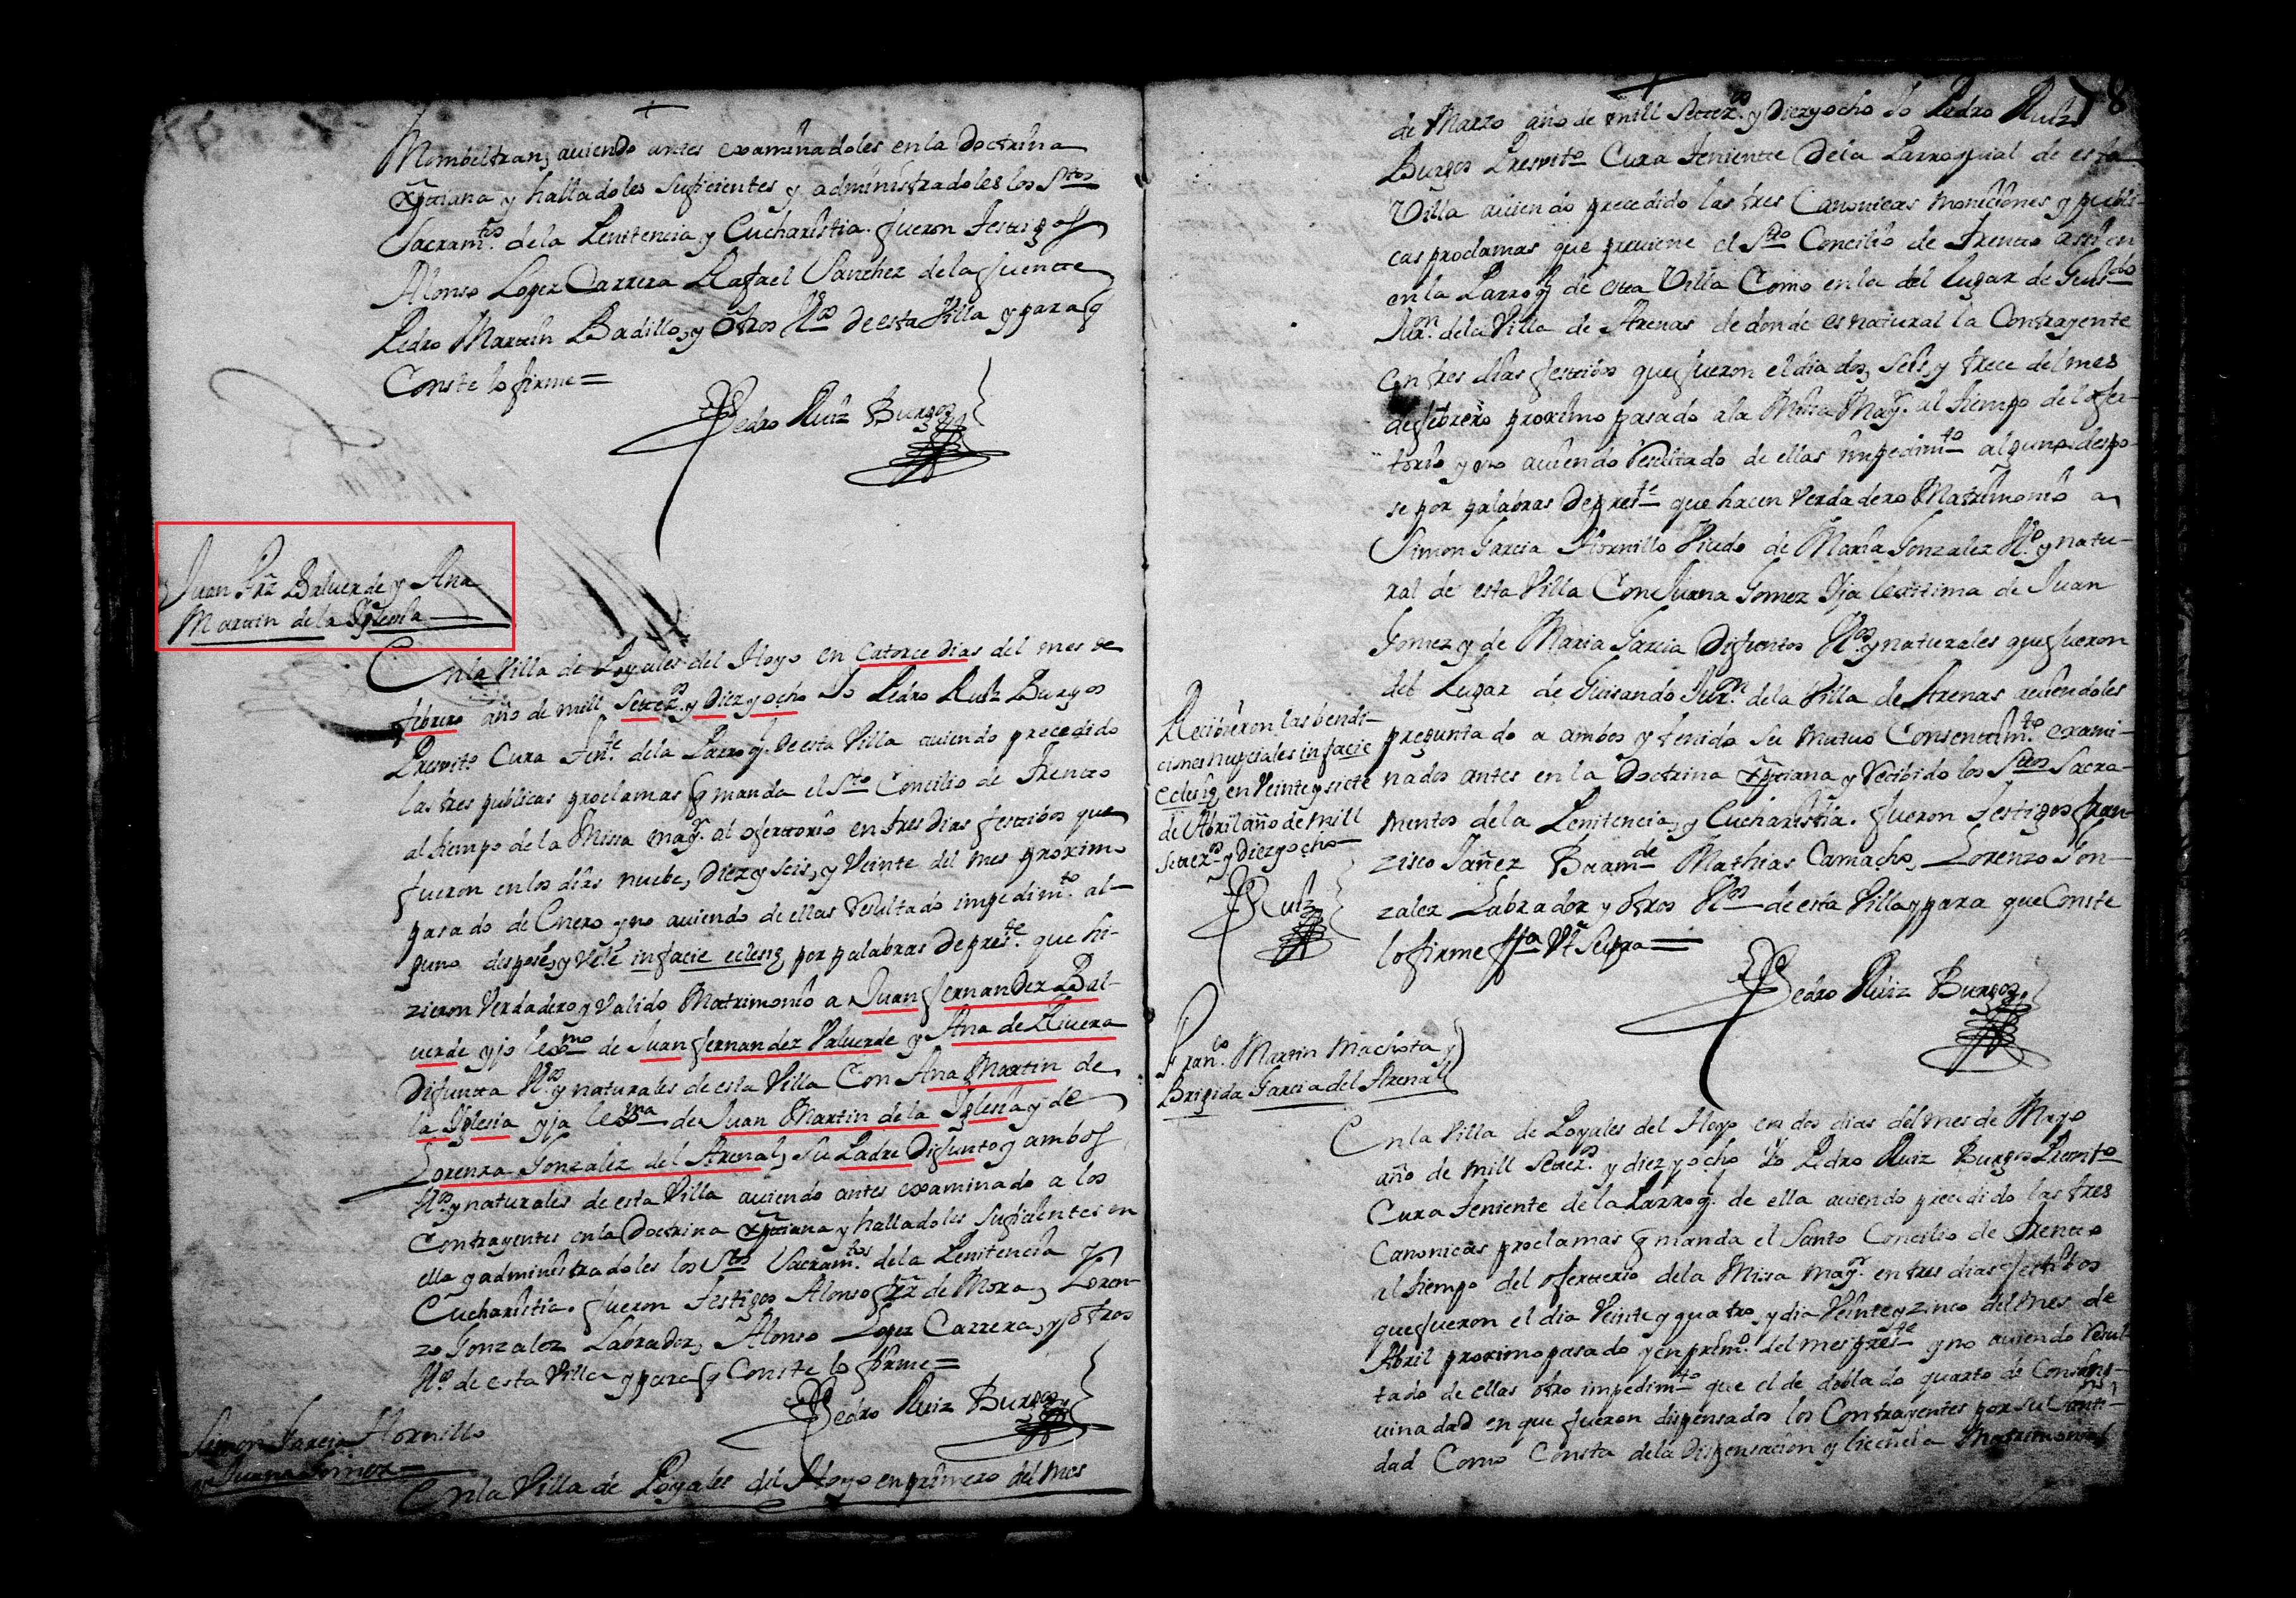 Mombeltran, auiendo antes examinadoles en la Doctrina
Xptiana y halladoles suficientes y administradoles los Stos
Sacram.tos de la Penitencia y Eucharistia. fueron testigos
Alonso Lopez Carrera Rafael Sanchez de la fuente
Pedro Martin Badillo, y otros V.os de esta Villa y para q
Conste lo firme =
Pedro Ruiz Burgos
Juan Frz Baluerde y Ana
Martin de la Iglesia
En la Villa de Poyales del Hoyo en Catorce dias del mes de
febrero año de mill Setez.os y Diez y ocho Yo Pedro Ruiz Burgos
Presvit.o Cura Ten.te de la Parroq. de esta Villa auiendo precedido
las tres publicas proclamas q manda el S.to Concilio de Trento
al tiempo de la Missa may.r al ofertorio en tres dias festibos que
fueron en los dias nuebe, Diez y seis, y Veinte del mes proximo
pasado de Enero y no auiendo de ellas resultado impedim.to al-
guno despose, y Vele in facie eclesię por palabras de pres.te que hi-
zieron Verdadero y Valido Matrimonio a Juan fernandez Bal-
uerde yjo lexmo de Juan fernandez Valuerde y Ana de Riuera
Difunta V.os y naturales de esta Villa Con Ana Martin de
la Iglesia yja lexma de Juan Martin de la Iglesia y de
Lorenza Gonzalez del Arenal, su Padre Difunto y ambos
V.os y naturales de esta Villa auiendo antes examinado a los
Contrayentes en la Doctrina Xptiana y halladoles suficientes en
ella y administradoles los Stos Sacram.tos de la Penitencia y
Eucharistia. fueron testigos Alonso frz de Mora, Loren-
zo Gonzalez Labrador, Alonso Lopez Carrera, y otros
V.os de esta Villa y para q Conste lo firme =
Pedro Ruiz Burgos
Simon Garcia Hornillo
y Juana Gomez =
En la Villa de Poyales del Hoyo en primero del mes
8
de Marzo año de mill Setez.os y Diez y ocho Yo Pedro Ruiz
Burgos Presvit.o Cura Teniente de la Parroquial de esta
Villa auiendo precedido las tres Canonicas moniciones y publi-
cas proclamas que preuiene el Sto Concilio de Trento assi en
en la Parroq. de esta Villa Como en la del Lugar de Guis.do
Jur.on de la Villa de Arenas de donde es natural la Contrayente
en tres dias festibos que fueron el dia dos, seis, y trece del mes
de febrero proximo pasado a la Missa May.r al tiempo del ofer-
torio y no auiendo resultado de ellas impedim.to alguno despo-
se por palabras de pres.te que hacen Verdadero Matrimonio a
Simon Garcia Hornillo Viudo de Maria Gonzalez V.o y natu-
ral de esta Villa Con Juana Gomez Yja lexitima de Juan
Gomez y de Maria Garcia Difuntos V.os y naturales que fueron
del Lugar de Guisando Jur.on de la Villa de Arenas auiendoles
preguntado a ambos y tenido su mutuo Consentim.to exami-
nados antes en la Doctrina Xptiana y recibido los Stos Sacra-
mentos de la Penitencia, y Eucharistia. fueron testigos fran-
zisco Yañez Mathias Camacho, Lorenzo Gon-
zalez Labrador y otros V.os de esta Villa y para que Conste
lo firme ffa Vt Supra =
Pedro Ruiz Burgos
Recibieron las bendi-
ciones nupciales in facie
eclesię en Veinte y siete
de Abril año de mill
Setez.os y diez y ocho
Ruiz
Fran.co Martin Machota y
Brigida Garcia del Arenal
En la Villa de Poyales del Hoyo en dos dias del mes de Mayo
año de mill Setez.os y diez y ocho Yo Pedro Ruiz Burgos Presvito
Cura Teniente de la Parroq. de ella auiendo precedido las tres
Canonicas proclamas q manda el Santo Concilio de Trento
al tiempo del ofertorio de la Missa may.r en tres dias festibos
que fueron el dia Veinte y quatro, y dia Veinte y zinco del mes de
Abril proximo pasado y en prim.o del mes pres.te y no auiendo resul-
tado de ellas otro impedim.to que el de doblado quarto de Consan-
guinadad en que fueron dispensados los Contrayentes por su Santi-
dad Como Consta de la Dispensacion y licencia Matrimonial